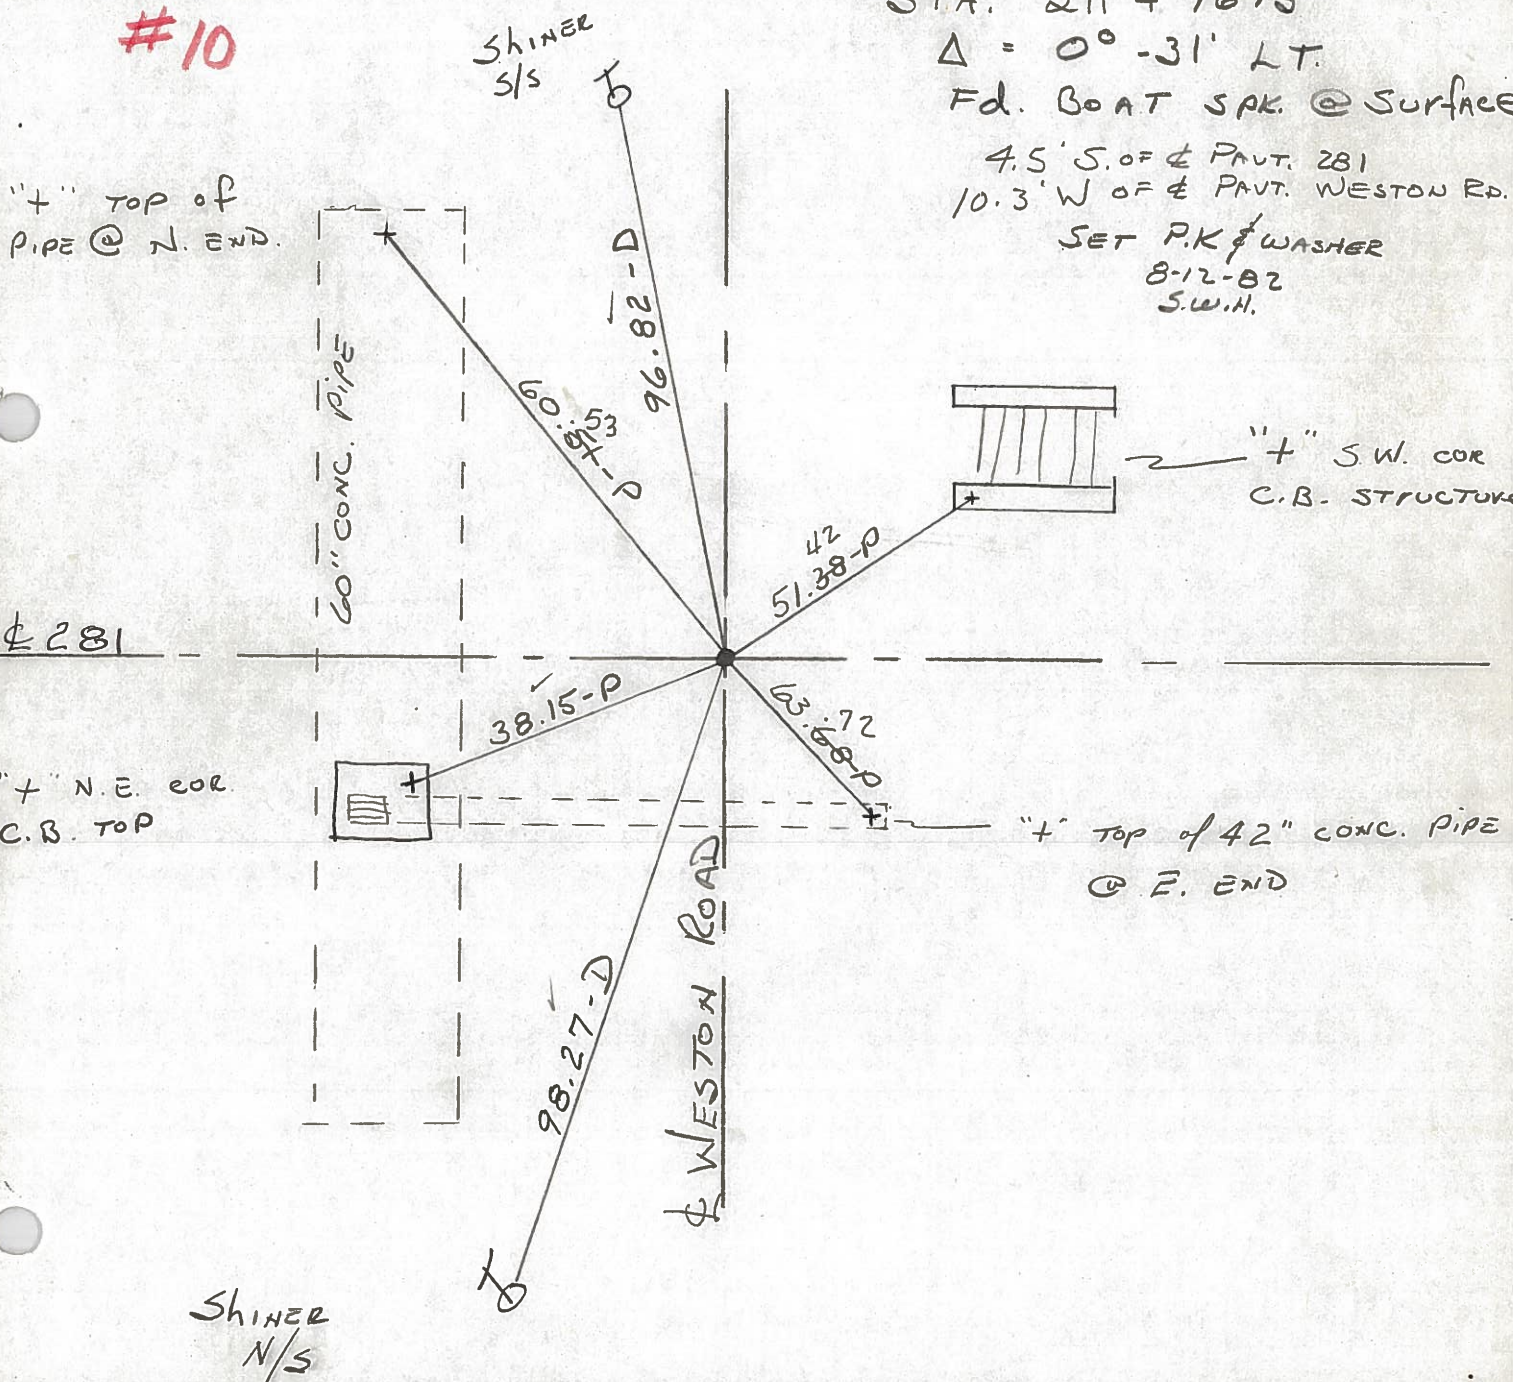 #10
SHINER
S/S
Δ = 0° -31' LT.
Fd. BOAT SPK. @ SurfACE
4.5' S. OF ℄ PAVT. 281
10.3' W OF ℄ PAVT. WESTON RD.
SET P.K & WASHER
8-12-82
S.W.H.
"+" TOP of
PIPE @ N. END.
96.82-D
60.53
-D
60" CONC. PIPE
"+" S.W. COR
C.B. STRUCTURE
42
51.38-P
℄ 281
38.15-P
63.72
68-P
"+" N.E. COR.
C.B. TOP
"+" TOP of 42" CONC. PIPE
@ E. END
98.27-D
℄ WESTON ROAD
SHINER
N/S